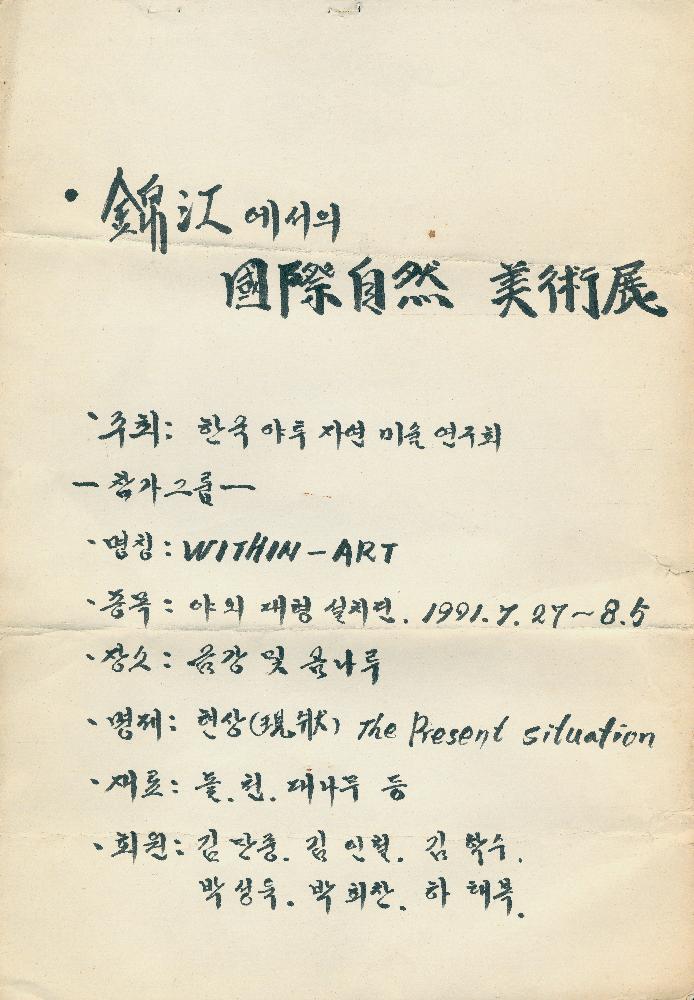 • 錦江에서의
國際自然 美術展
· 주최: 한국 야투 자연 미술 연구회
— 참가그룹 —
· 명칭: WITHIN - ART
· 종목: 야외 대형 설치전. 1991. 7. 27 ~ 8. 5
· 장소: 금강 및 곰나루
· 명제: 현상(現狀) The Present situation
· 재료: 돌. 천. 대나무 등
· 회원: 김 인철. 김 학수.
박 성욱. 박 희찬. 하